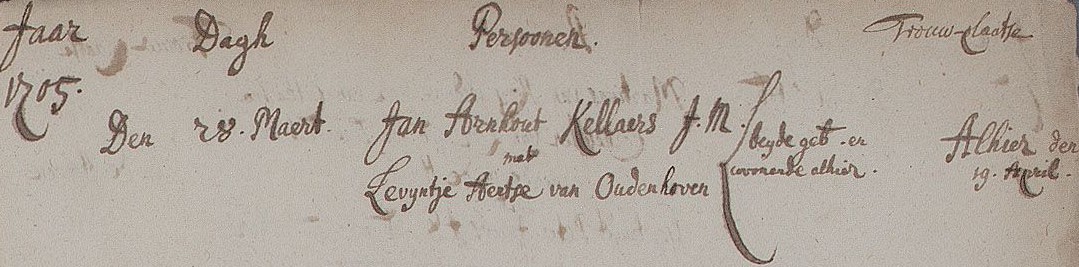 Jaar Dagh Persoonen. Trouw-plaatse
1705.
Den 28. Maert. Jan Arnhout Kellaers J. M. beyde geb. en Alhier den
met woonende alhier. 19. April.
Levyntje Aertse van Oudenhoven